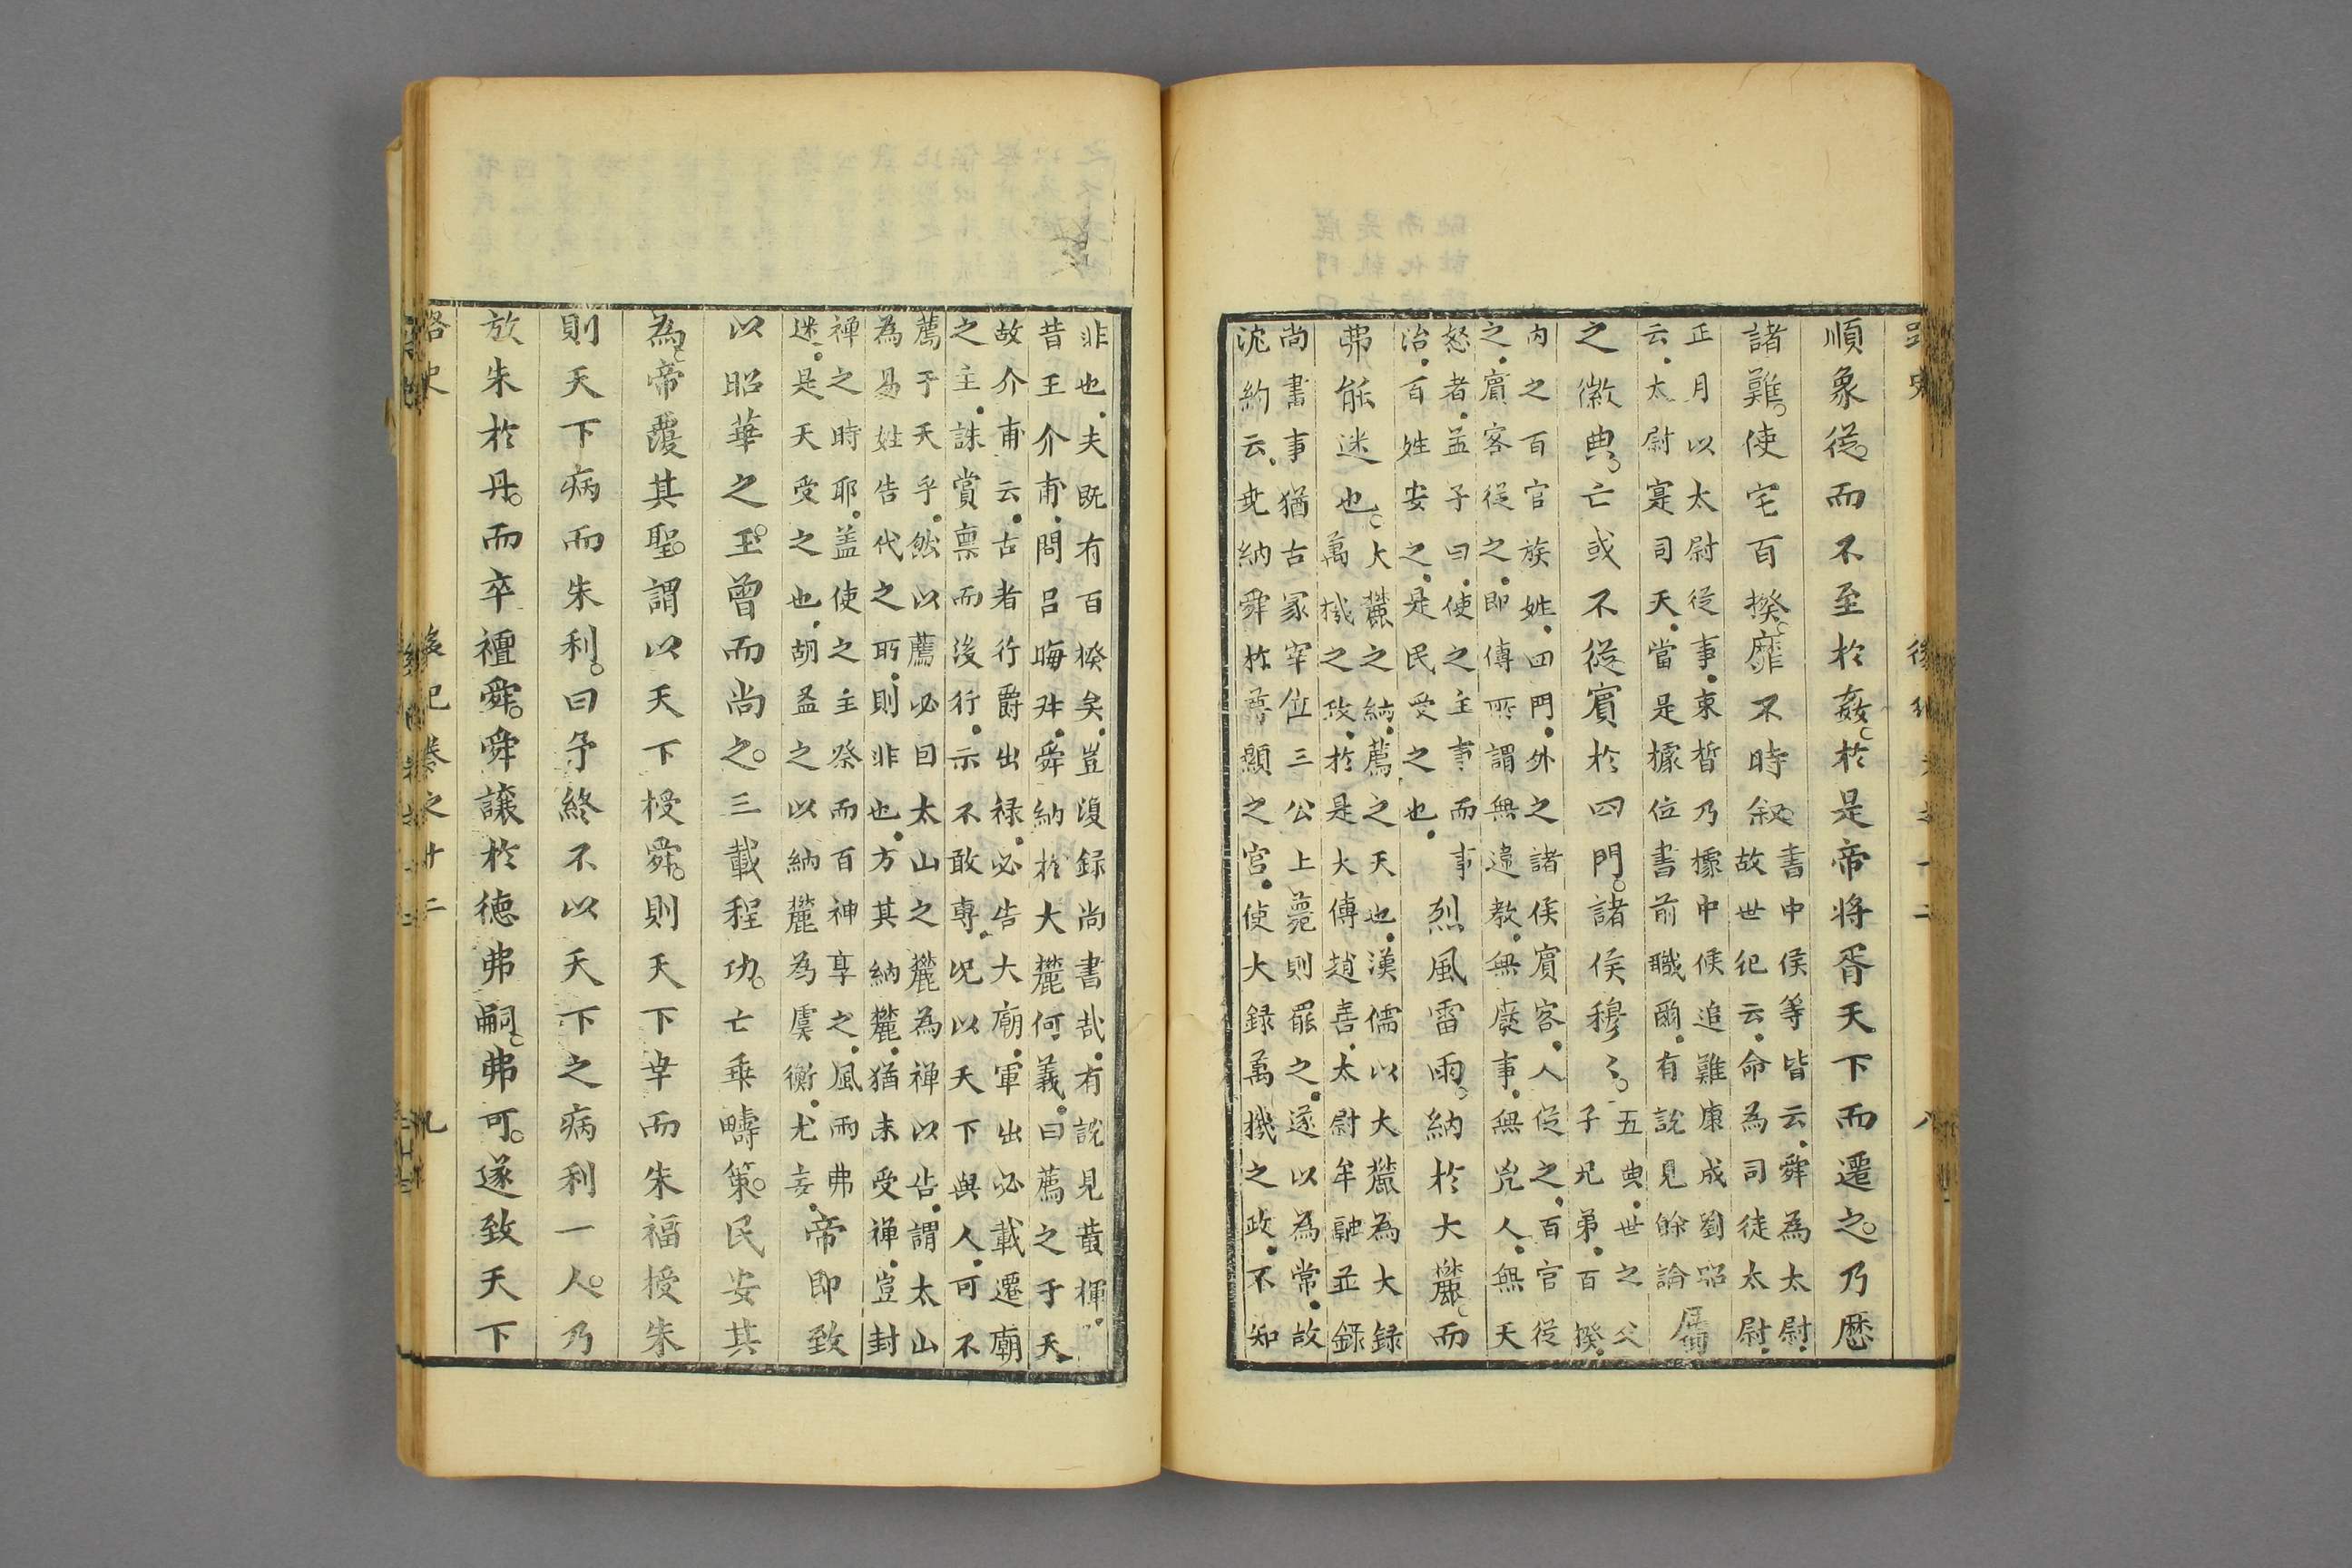 順象從而不至於姦於是帝將胥天下而遷之乃歷
諸難使宅百揆靡不時叙
書中侯等皆云舜為太尉
故世紀云命為司徒太尉
正月以太尉從事東晳乃據中候追難康成劉昭
云太尉寔司天當是據位書前職爾有說見餘論
屬
之徽典亡或不從賓於四門諸侯穆〻
五典世之父
子兄弟百揆
内之百官族姓四門外之諸侯賓客人從之百官從
之賓客從之即傳所謂無違教無廢事無凶人無天
怒者孟子曰使之主事而事
治百姓安之是民受之也
烈風雷雨納於大麓而
弗能迷也
大麓之納薦之天也漢儒以大麓為大録
萬機之政於是大傳趙善太尉牟融並録
尚書事猶古冢宰位三公上薨則罷之遂以為常故
沈約云堯納舜於尊顯之官使大録萬機之政不知
非也夫既有百揆矣豈復録尚書哉有說見黃揮
昔王介甫問呂晦舛舜納於大麓何義曰薦之于天
故介甫云古者行爵出禄必告大廟軍出必載遷廟
之主誅賞禀而後行示不敢專况以天下與人可不
薦于天乎然以薦必曰太山之麓為禅以告謂太山
為易姓告代之所則非也方其納麓猶未受禅豈封
禅之時耶盖使之主祭而百神享之風雨弗
迷是天受之也胡孟之以納麓為虞衡尤妄
帝即致
以昭華之玉王曾而尚之三載程功亡乗疇策民安其
為帝覆其聖謂以天下授舜則天下幸而朱福授朱
則天下病而朱利曰予終不以天下之病利一人乃
放朱於丹而卒禪舜舜讓於德弗嗣弗可遂致天下
路史
後紀卷之十二
九